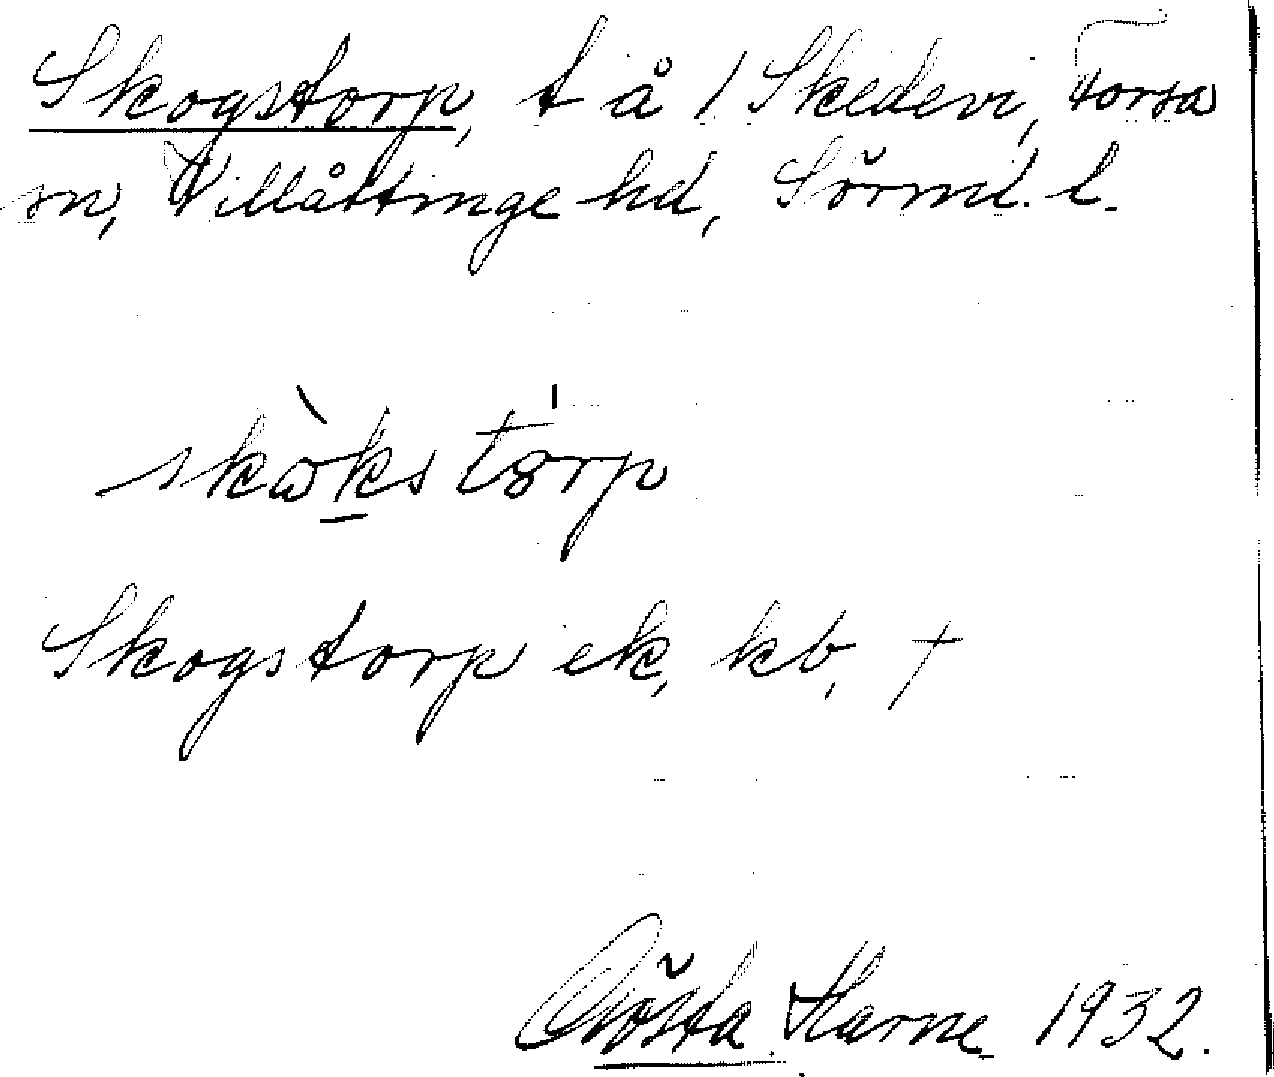 Skogstorp, t å /Skedevi, Forsa
sn, Villåttinge hd, Sörml. l.
skòkstórp
Skogstorp ek, kb, †
Gösta Harne 1932.